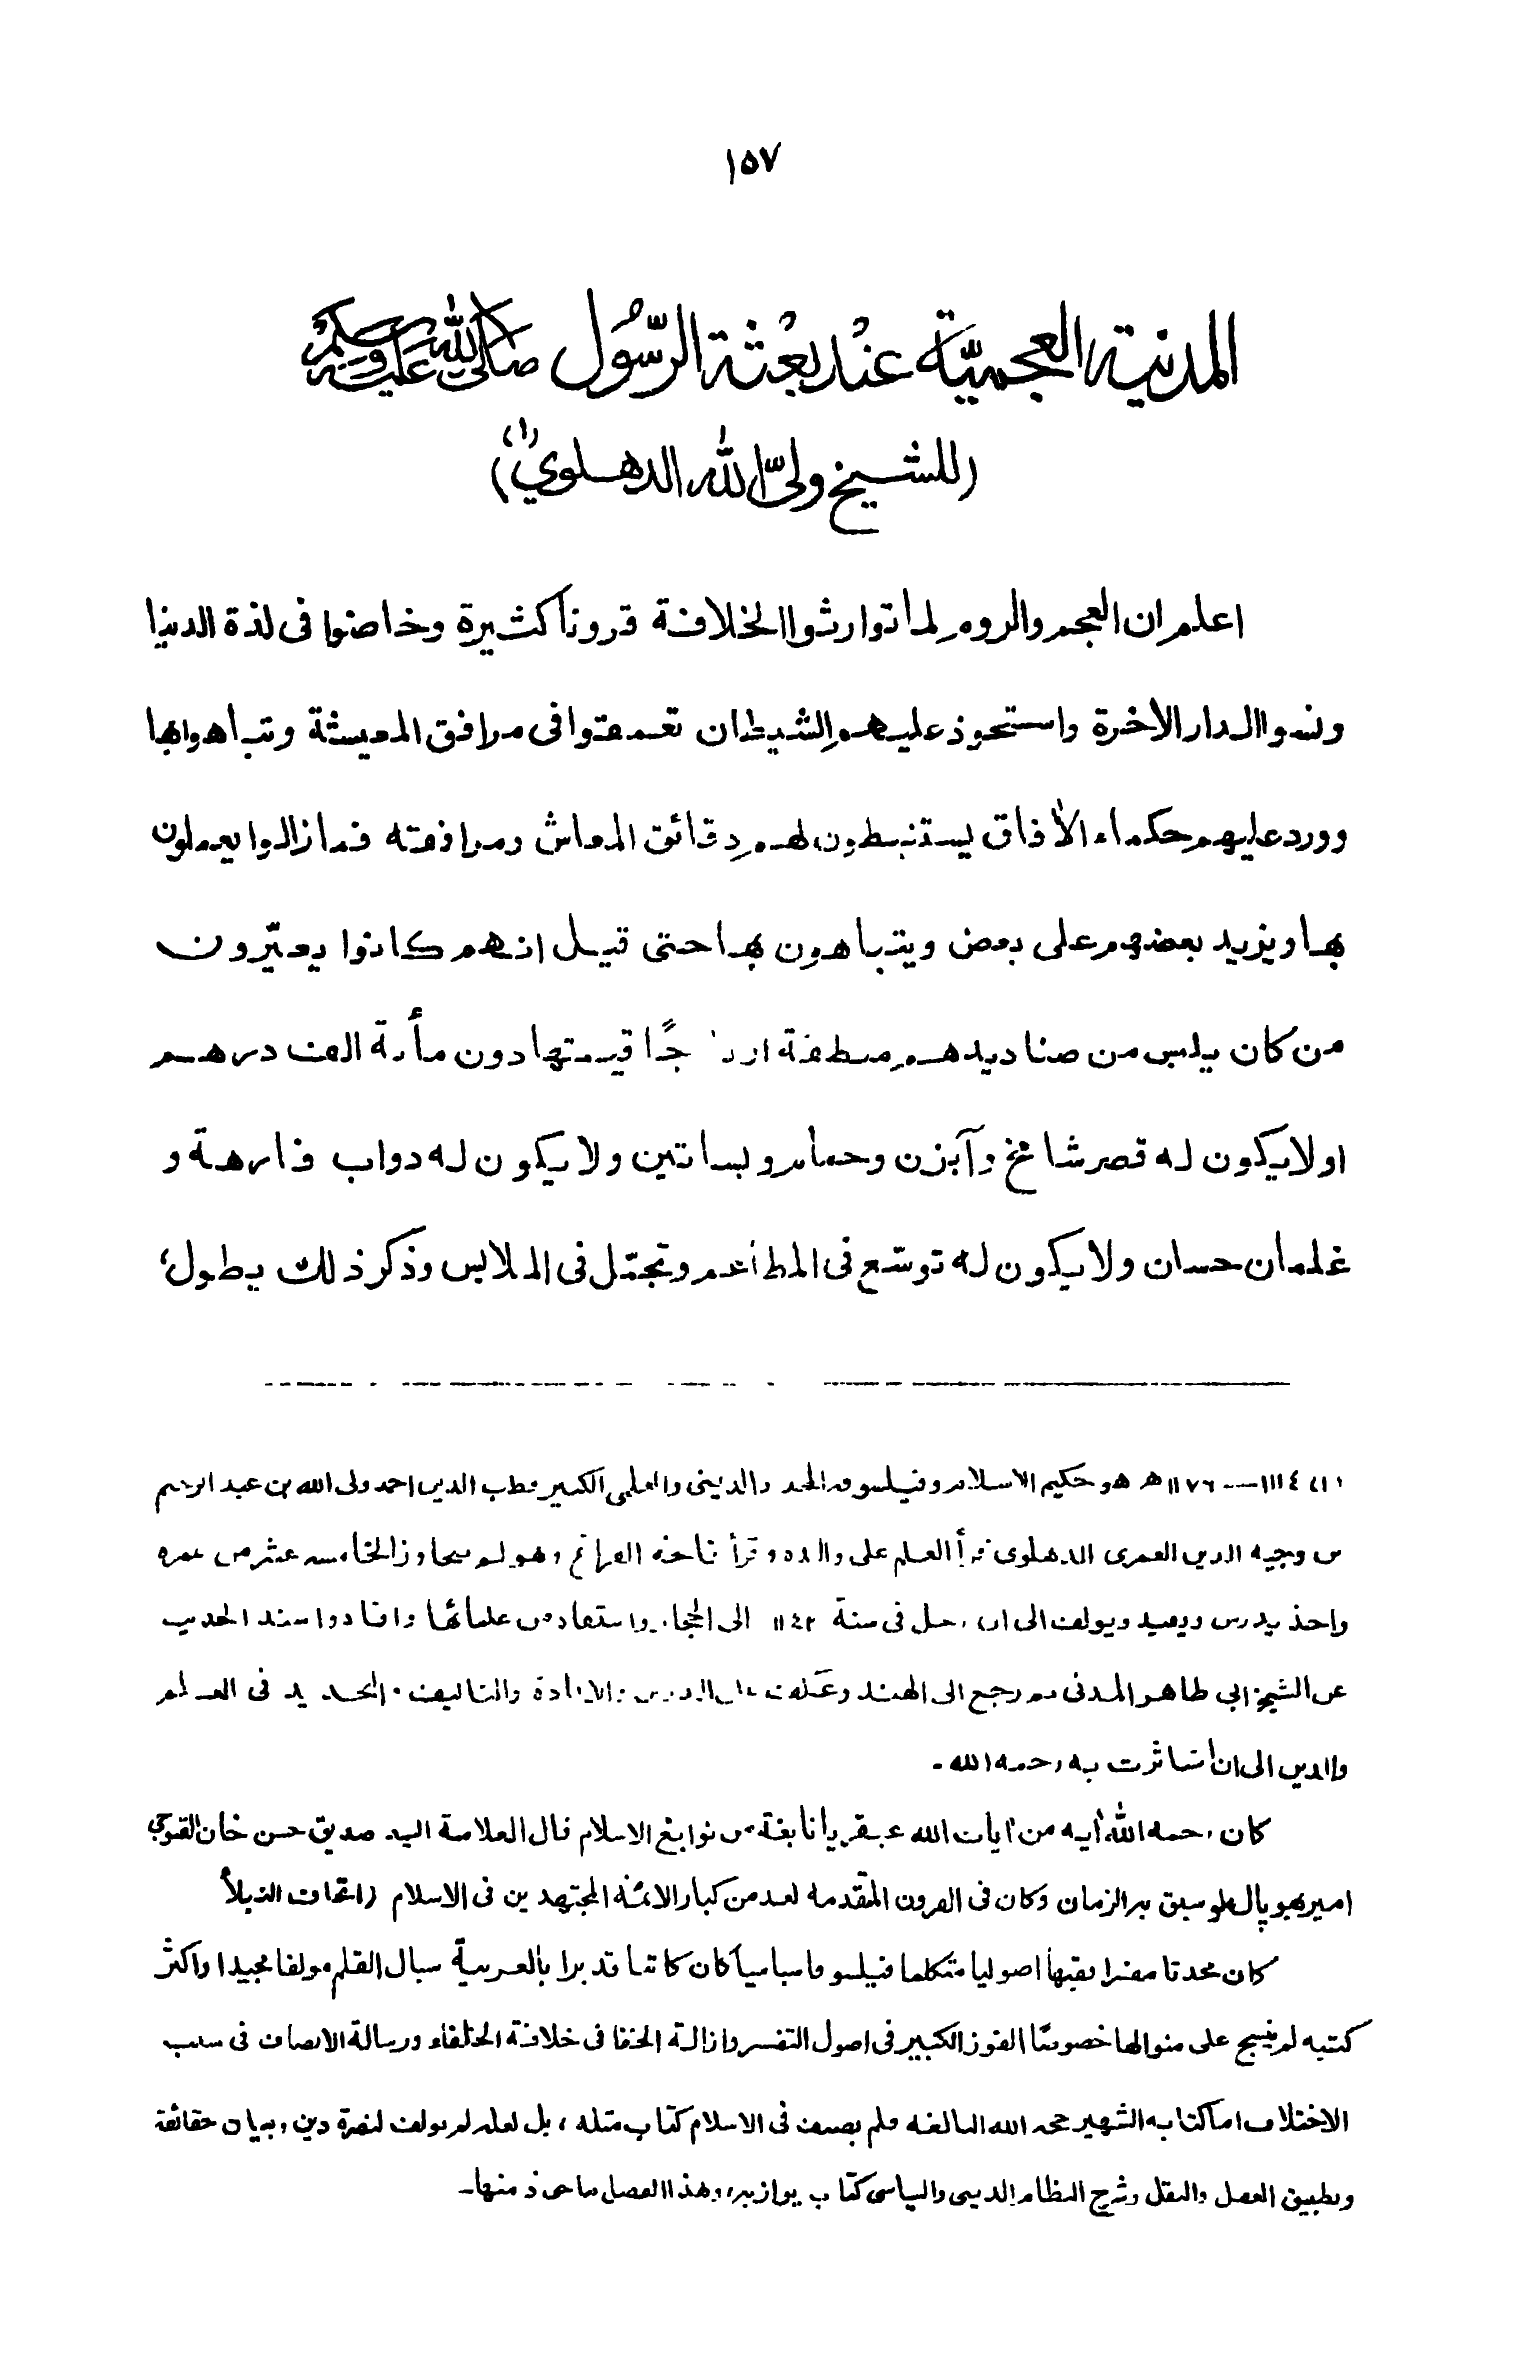 ١٥٧
المدنية العجميّة عند بعثة الرّسُول صلى الله عليه وسلم
(للشيخ ولىّ الله الدهلوي (١))
اعلم ان العجم والروم لما توارثوا الخلافة قروناً كثيرة وخاضوا فى لذة الدنيا
ونسوا الدار الاخرة واستحوذ عليهم الشيطان تعمقوا فى مرافق المعيشة وتباهوا بها
وورد عليهم حكماء الآفاق يستنبطون لهم دقائق المعاش ومرافقه فما زالوا يعملون
بها ويزيد بعضهم على بعض ويتباهون بها حتى قيل انهم كانوا يعيّرون
من كان يلبس من صناديدهم منطقة او تاجًا قيمتها دون مأة الف درهم
او لا يكون له قصر شامخ وآبزن وحمام وبساتين ولا يكون له دواب فارهة و
غلمان حسان ولا يكون له توسّع فى المطاعم وتجمّل فى الملابس وذكر ذلك يطول،
١١١٤ — ١١٧٦ هـ هو حكيم الاسلام وفيلسوفه المجدد الدينى والعلمى الكبير قطب الدين احمد ولى الله بن عبد الرحيم
بن وجيه الدين العمرى الدهلوى قرأ العلم على والده وقرأ فاتحة الفراغ وهو لم يتجاوز الخامسة عشر من عمره
واخذ يدرس ويفيد ويولف الى ان رحل فى سنة ١١٤٢ الى الحجاز واستفاد من علمائها وافادوا سند الحديث
عن الشيخ ابى طاهر المدنى ثم رجع الى الهند وعكف على الدرس والافادة والتاليف والتجديد فى العلم
والدين الى ان استاثرت به رحمة الله ـ
كان رحمه الله أية من أيات الله عبقريا نابغة من نوابغ الاسلام قال العلامة السيد صديق حسن خان القنوجى
امير بهوپال لو سبق به الزمان وكان فى القرون المتقدمة لعد من كبار الائمة المجتهدين فى الاسلام (اتحاف النبلأ
كان محدثا مفسرا فقيهاً اصوليا متكلما فيلسوفا سياسياً كان كاتبا قديرا بالعربية سيال القلم مولفا مجيدا واكثر
كتبه لم ينسج على منوالها خصوصًا الفوز الكبير فى اصول التفسير وازالة الخفا فى خلافة الخلفاء ورسالة الانصاف فى سبب
الاختلاف اما كتابه الشهير حجة الله البالغة فلم يصنف فى الاسلام كتاب مثله، بل لعله لم يولف لنصرة دين وبيان حقائقه
وتطبيق العقل والنقل وشرح النظام الدينى والسياسى كتاب يوازيه، وهذا الفصل ماخوذ منها ـ